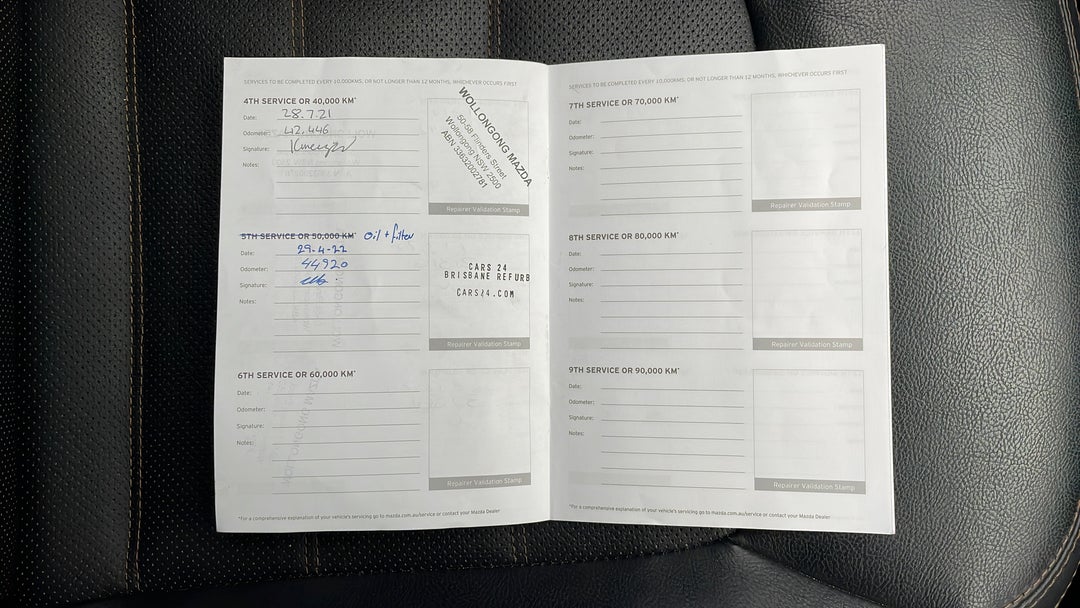 SERVICES TO BE COMPLETED EVERY 10,000KMS, OR NOT LONGER THAN 12 MONTHS, WHICHEVER OCCURS FIRST
4TH SERVICE OR 40,000 KM*
Date: 28.7.21
Odometer: 42,446
Signature:
Notes:
WOLLONGONG MAZDA
50-58 Flinders Street
Wollongong NSW 2500
ABN 33632002781
Repairer Validation Stamp
5TH SERVICE OR 50,000 KM* Oil + filter
Date: 29-4-22
Odometer: 44920
Signature:
Notes:
CARS 24
BRISBANE REFURB
CARS24.COM
Repairer Validation Stamp
6TH SERVICE OR 60,000 KM*
Date:
Odometer:
Signature:
Notes:
Repairer Validation Stamp
*For a comprehensive explanation of your vehicle's servicing go to mazda.com.au/service or contact your Mazda Dealer
SERVICES TO BE COMPLETED EVERY 10,000KMS, OR NOT LONGER THAN 12 MONTHS, WHICHEVER OCCURS FIRST
7TH SERVICE OR 70,000 KM*
Date:
Odometer:
Signature:
Notes:
Repairer Validation Stamp
8TH SERVICE OR 80,000 KM*
Date:
Odometer:
Signature:
Notes:
Repairer Validation Stamp
9TH SERVICE OR 90,000 KM*
Date:
Odometer:
Signature:
Notes:
Repairer Validation Stamp
*For a comprehensive explanation of your vehicle's servicing go to mazda.com.au/service or contact your Mazda Dealer